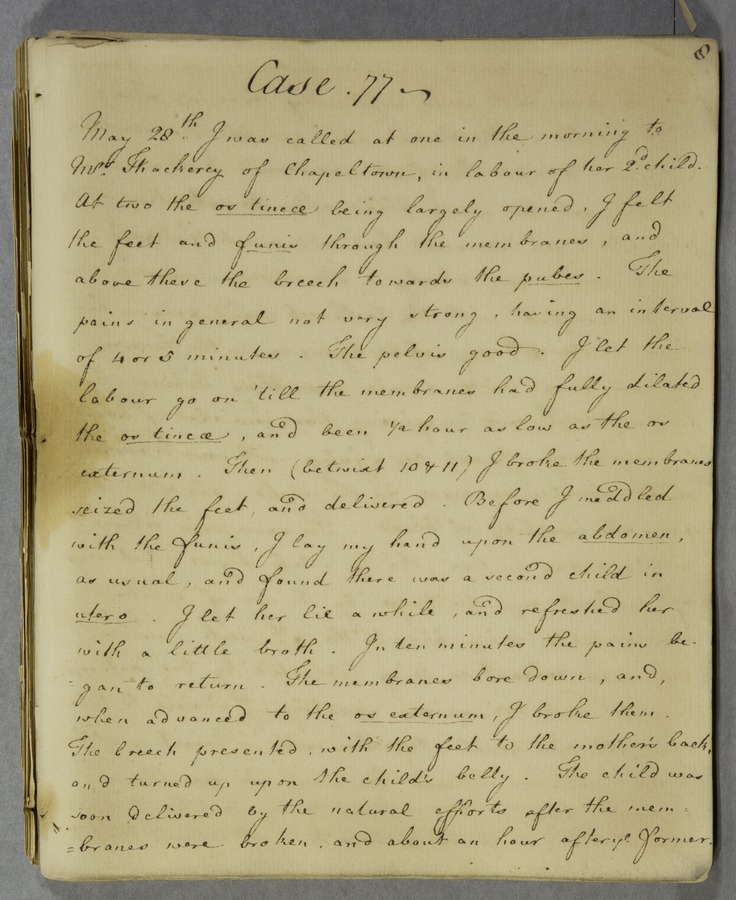 8
Case. 77
May 28th. I was called at one in the morning to
Mrs. Thackercy of Chapeltown, in labour of her 2d. child.
At two the os tincæ being largely opened, I felt
the feet and funis through the membranes, and
above these the breech towards the pubes. The
pains in general not very strong, having an interval
of 4 or 5 minutes. The pelvis good. I let the
labour go on 'till the membranes had fully dilated
the os tincæ, and been 1/2 hour as low as the os
externum. Then (betwixt 10 & 11) I broke the membranes
seized the feet, and delivered. Before I meddled
with the funis, I lay my hand upon the abdomen,
as usual, and found there was a second child in
utero. I let her lie a while, and refreshed her
with a little broth. In ten minutes the pains be-
gan to return. The membranes bore down, and,
when advanced to the os externum, I broke them.
The breech presented, with the feet to the mother's back,
and turned up upon the child's belly. The child was
soon delivered by the natural efforts after the mem=
=branes were broken, and about an hour after ye former.